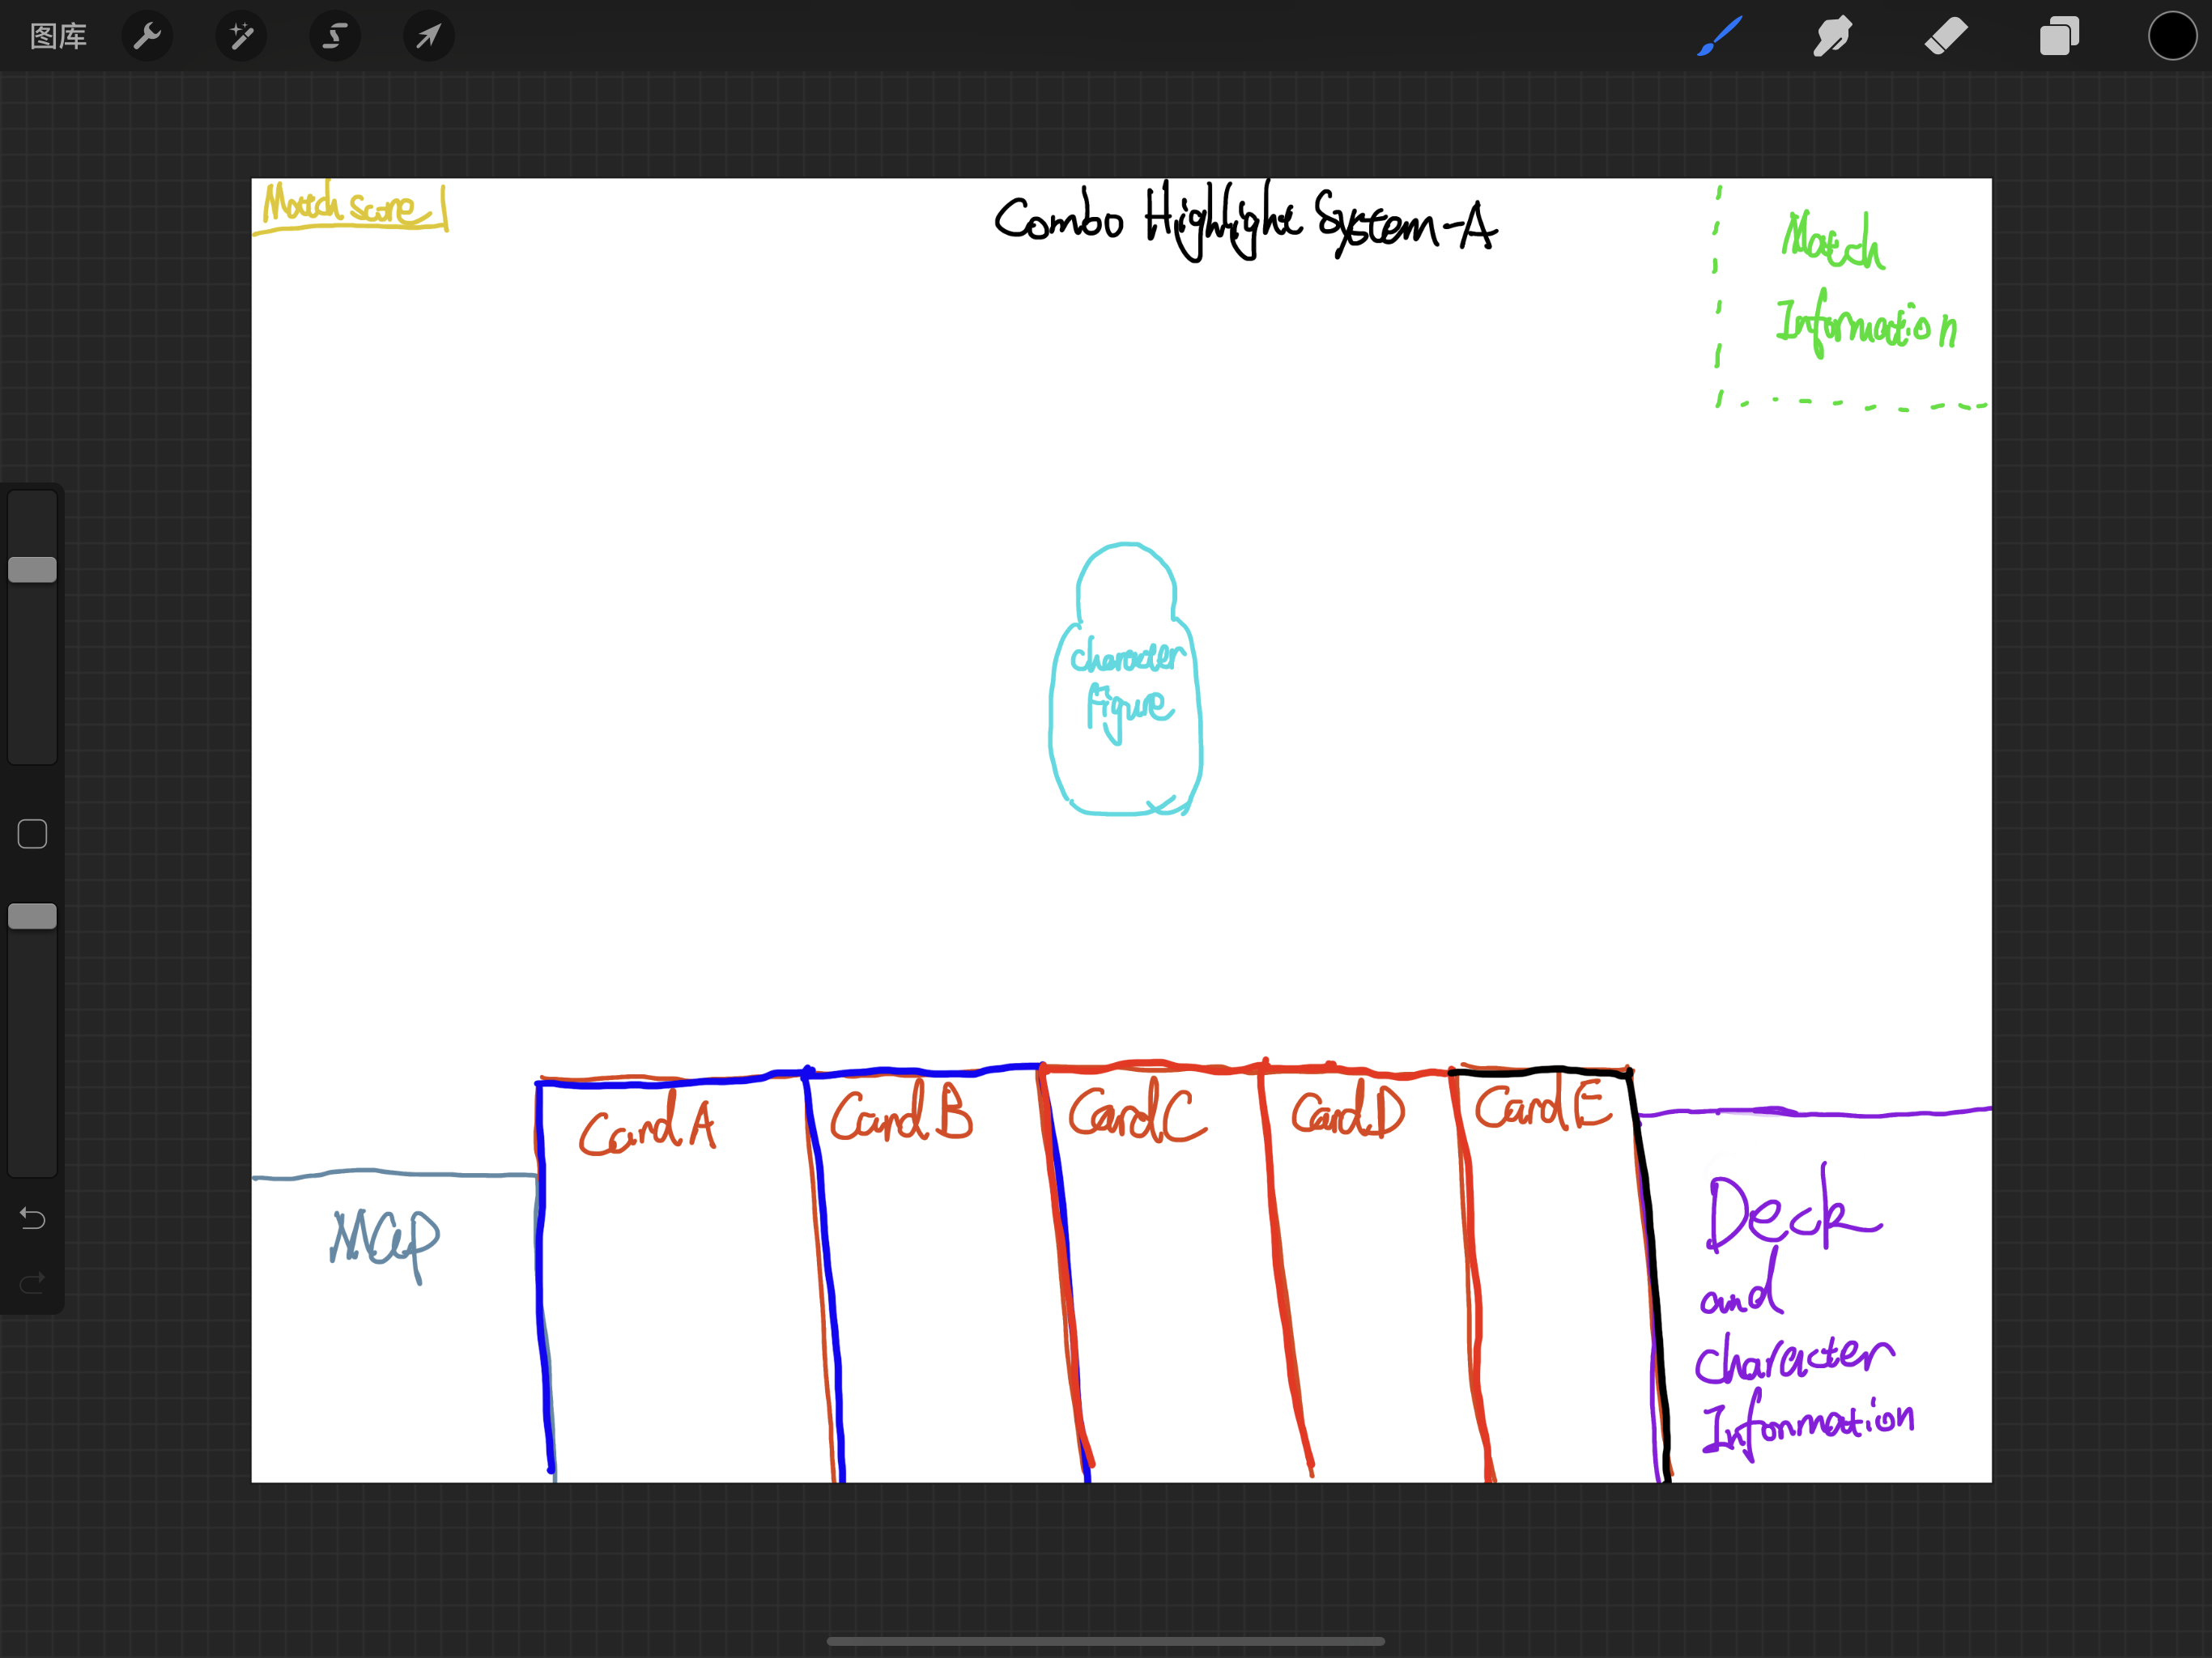 图库
Match score
Combo Highlight System-A
Match
Information
Character
Figure
Card A
Card B
Card C
Card D
Card E
Map
Deck
and
Character
Information